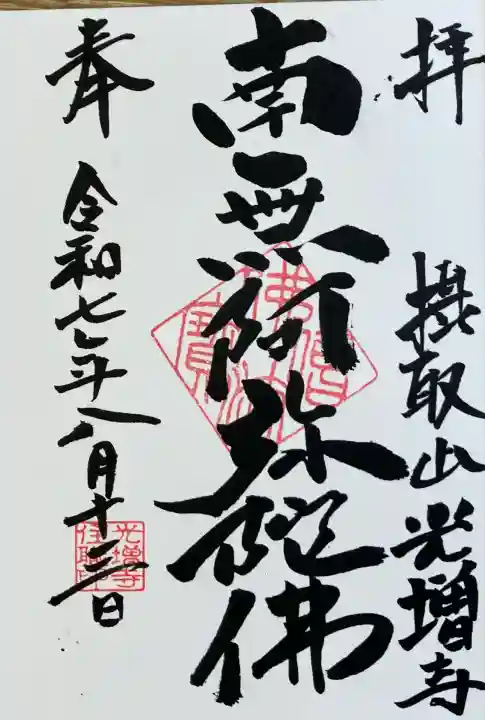 奉拝
摂取山光増寺
南無阿弥陀佛
令和七年八月十三日
佛法僧寳
光増寺住職印